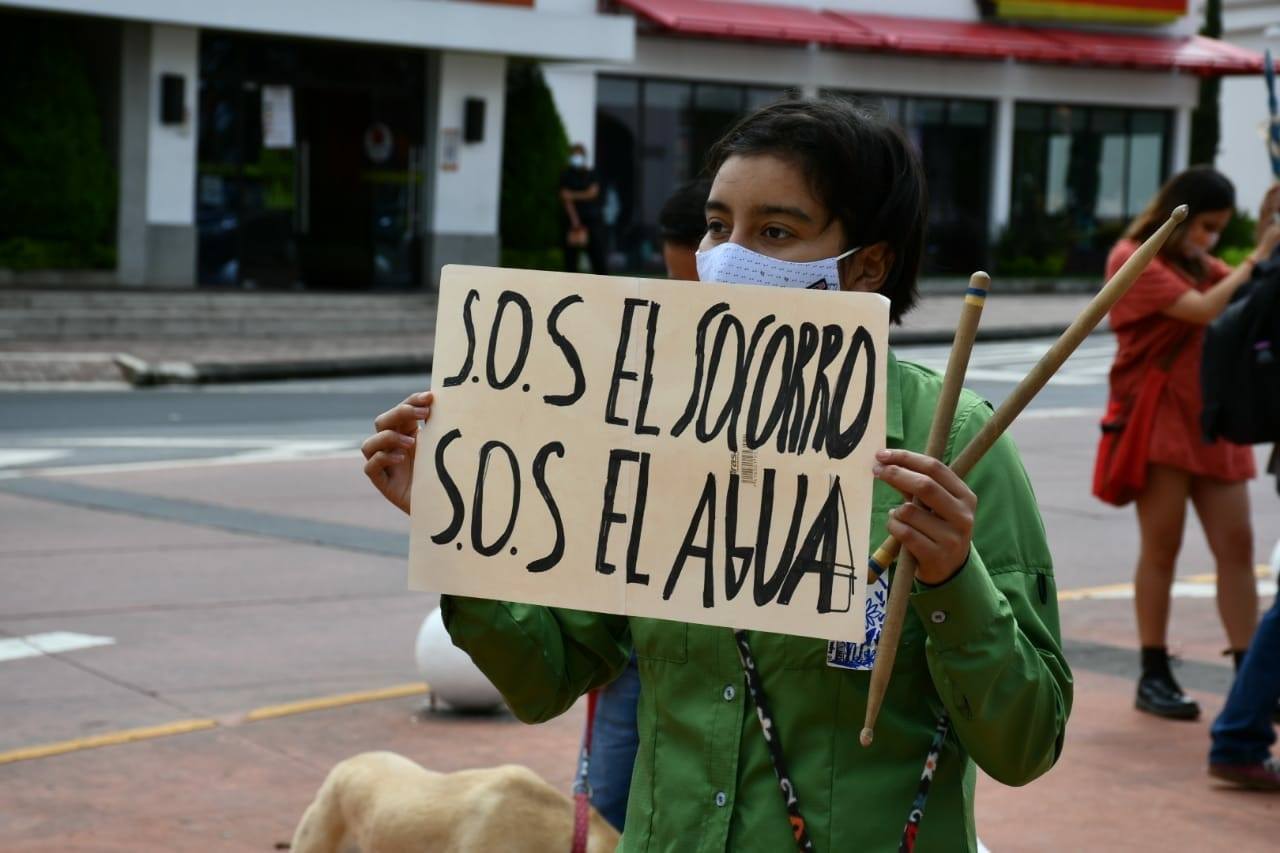 S.O.S EL SOCORRO
S.O.S. EL AGUA